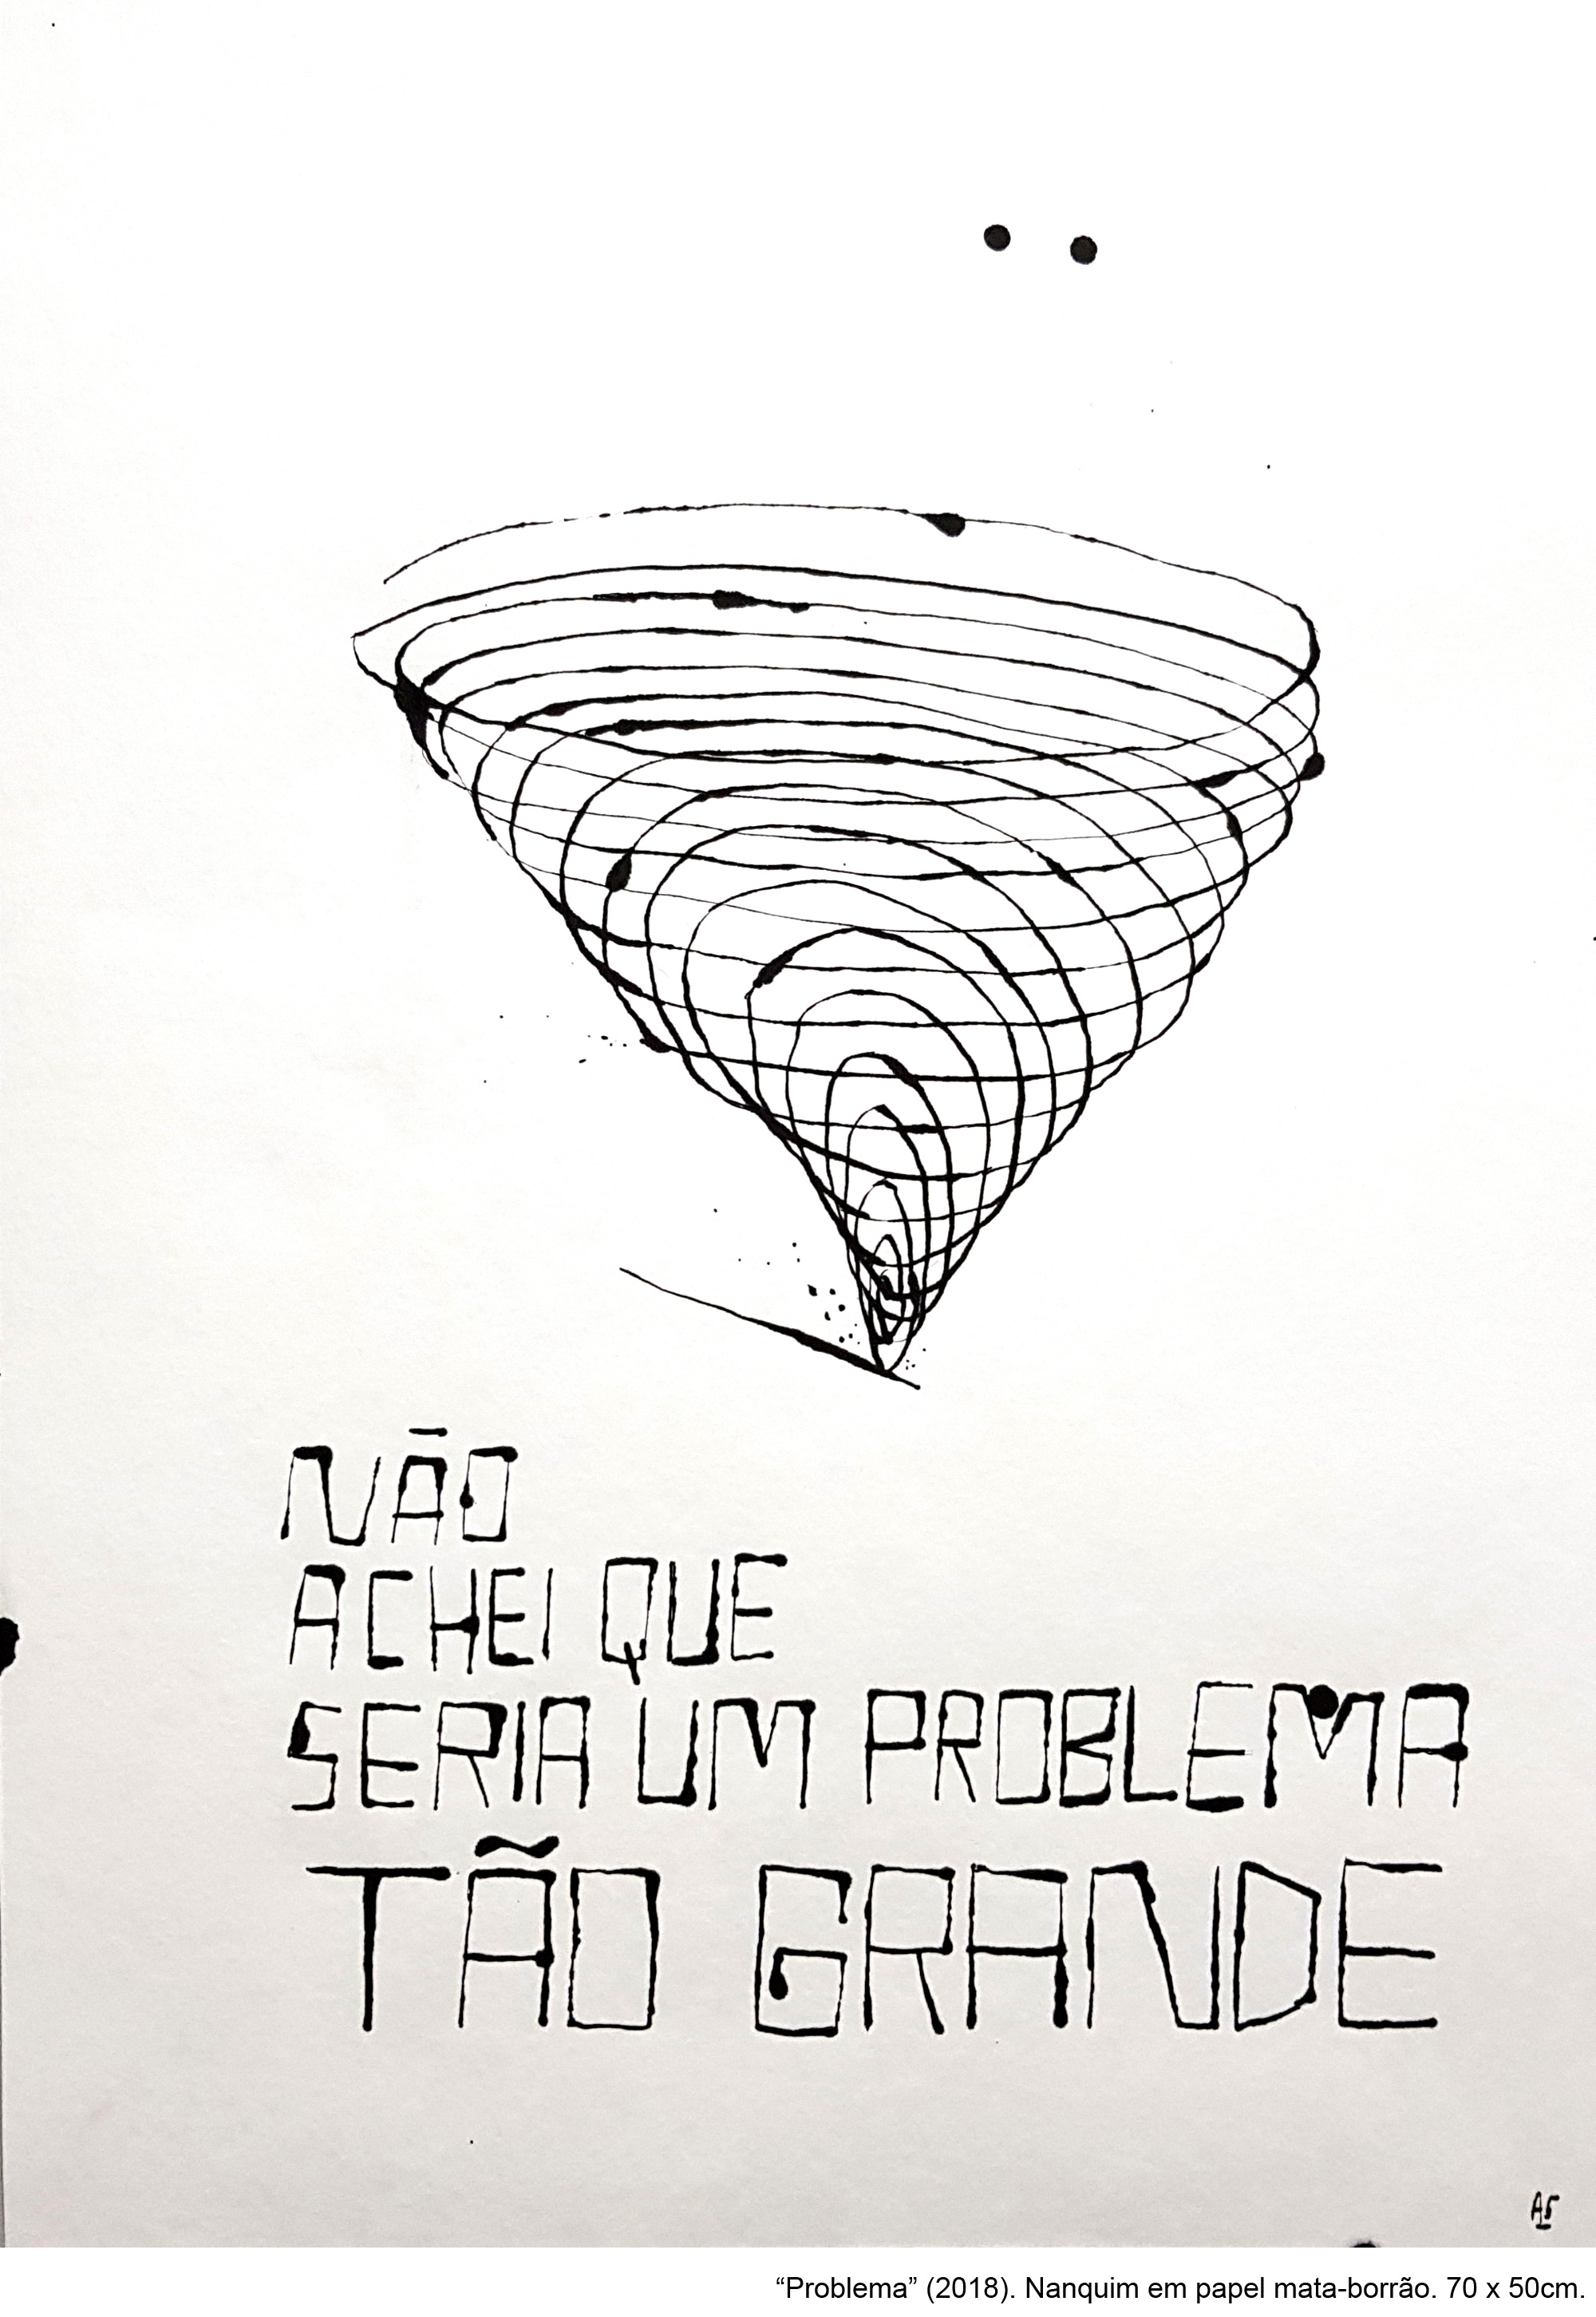 NÃO
ACHEI QUE
SERIA UM PROBLEMA
TÃO GRANDE
“Problema” (2018). Nanquim em papel mata-borrão. 70 x 50cm.